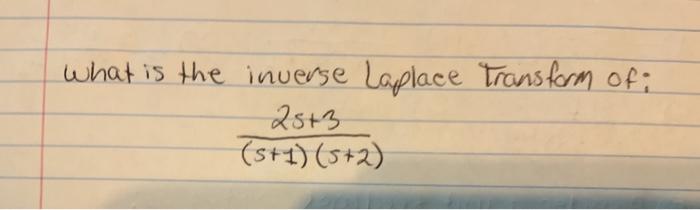 What is the inverse Laplace Transform of:
2s+3
(s+1)(s+2)